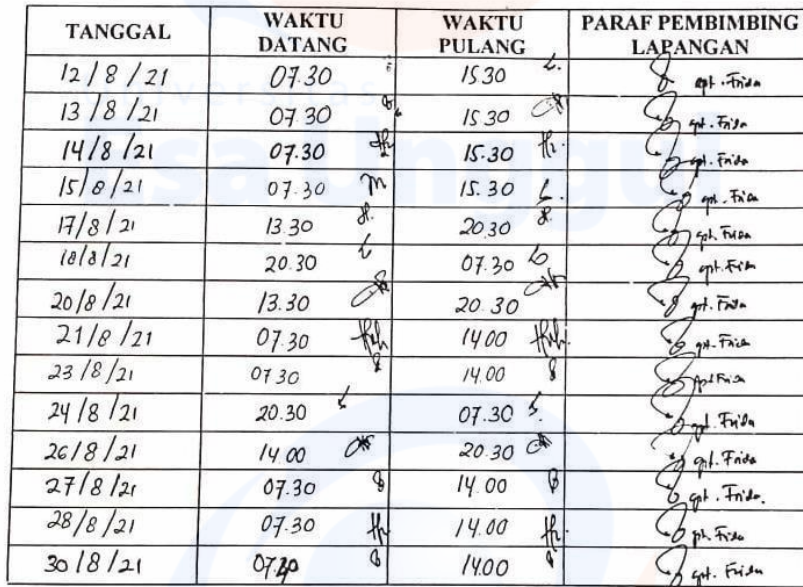 TANGGAL WAKTU DATANG WAKTU PULANG PARAF PEMBIMBING LAPANGAN
12/8/21 07.30 15.30 apt. Frida
13/8/21 07.30 15.30 apt. Frida
14/8/21 07.30 15.30 apt. Frida
15/8/21 07.30 15.30 apt. Frida
17/8/21 13.30 20.30 apt. Frida
18/8/21 20.30 07.30 apt. Frida
20/8/21 13.30 20.30 apt. Frida
21/8/21 07.30 14.00 apt. Frida
23/8/21 07.30 14.00 apt Frida
24/8/21 20.30 07.30 apt. Frida
26/8/21 14.00 20.30 apt. Frida
27/8/21 07.30 14.00 apt. Frida.
28/8/21 07.30 14.00 apt. Frida
30/8/21 14.00 apt. Frida
Universitas
Esa Unggul